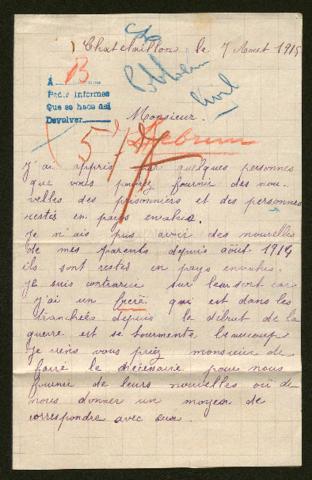 Chatelaillon le 7 Aout 1915
A
B
Pedir informes
Que se hace del
Devolver
civil
Monsieur.
5
Lebrun
j'ai appris par quelques personnes
que vous pouvez fournir des nou-
velles des prisonniers et des personnes
restés en pays envahis.
Je n'ais pas avoir des nouvelles
de mes parents depuis août 1914
ils sont restés en pays envahis.
je suis contrariée sur leur sort car
j'ai un frère qui est dans les
tranchées depuis le début de la
guerre est se tourmente beaucoup
Je viens vous priez monsieur de
faire le nécessaire pour nous
fournir de leurs nouvelles où de
nous donner un moyen de
correspondre avec eux.